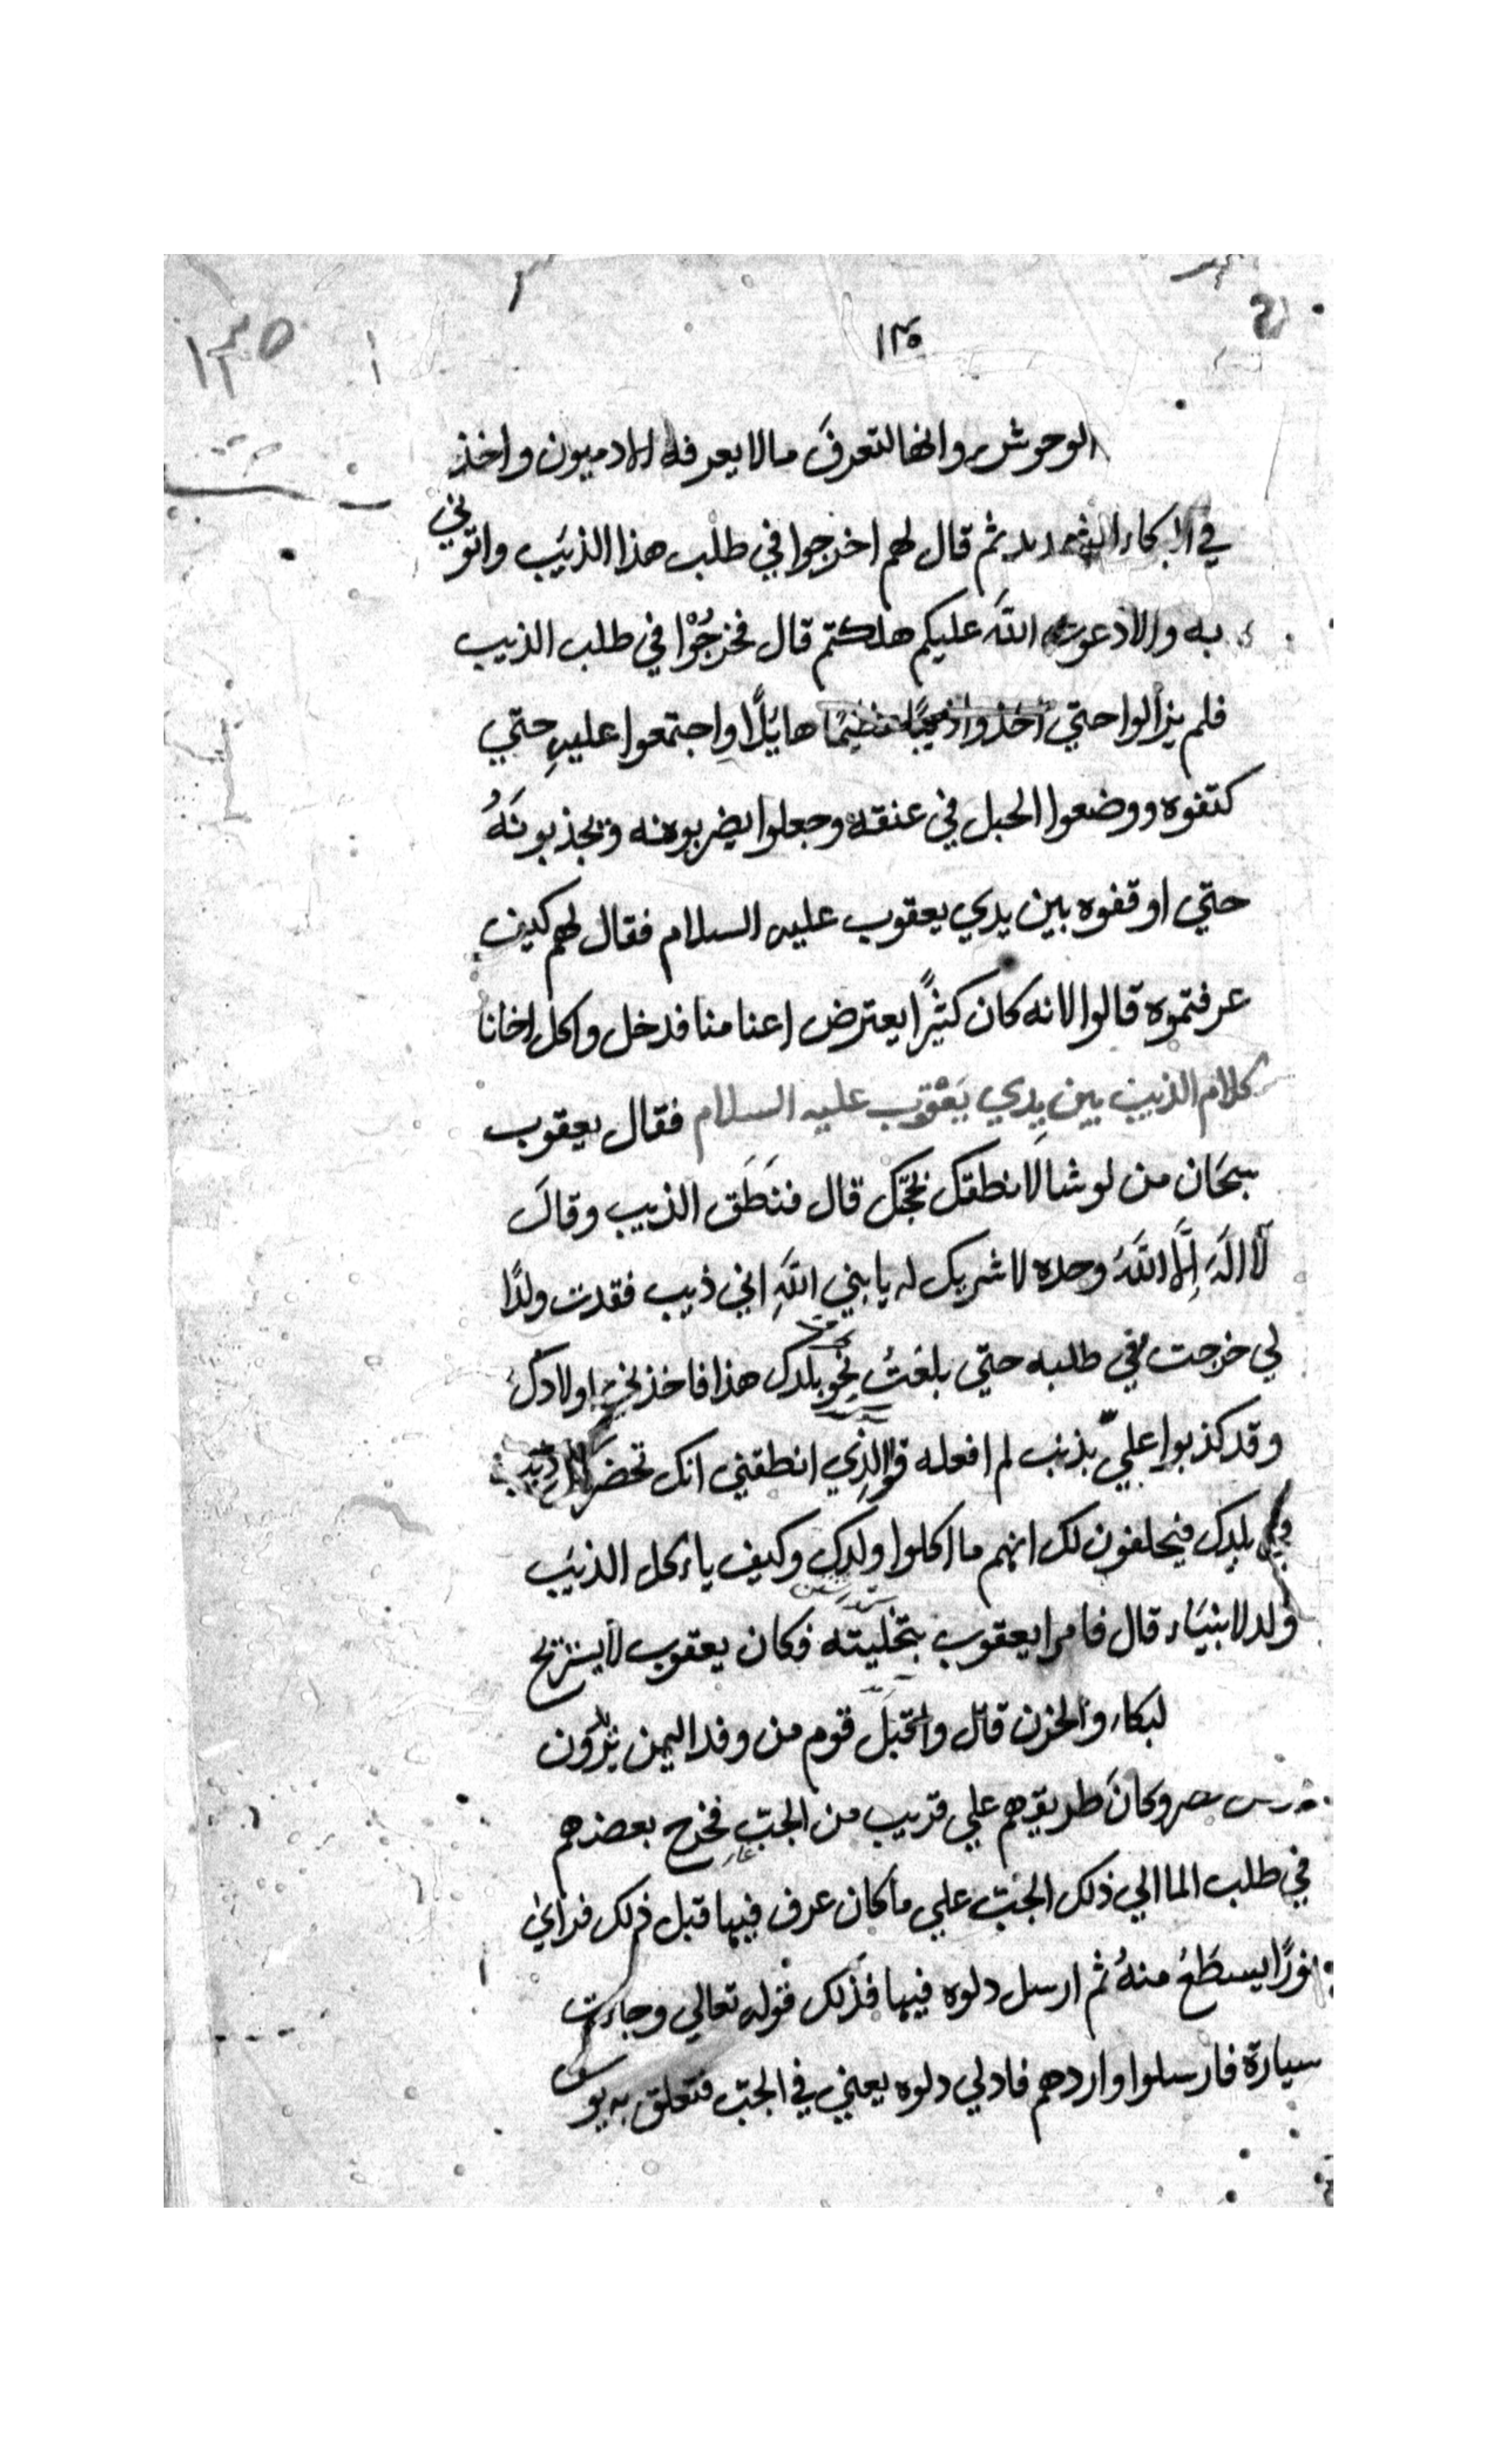 ١٣٥
١٣٥
الوحوش وانها لتعرفَ مالا يعرفه الادميون واخذ
في البكاء الشديد ثم قال لهم اخرجوا في طلب هذا الذيَب واتوني
به والا دعوت اللَّه عليكم هلكتم قال فخرجُوْا في طلب الذيب
فلم يزالوا حتي اخذوا ذيبًا عظيمًا هايًلا واجتمعوا عليهِ حتي
كتفوه ووضعوا الحبل في عنقه وجعلوا يضربونه ويجذبونَهُ
حتي اوقفوه بين يدي يعقوب عليه السلام فقال لهم كيف
عرفتموه قالوا لانه كان كثيرًا يعترض اغنامنا فدخل واكل اخانا
كلام الذيب بين يدي يَعْقوب عليه السلام فقال يعقوب
سبحَان من لوشا لانطقك بحجّتك قال فنَطَق الذيب وقالَ
لآ الَهَ اِلَّا اللَّهُ وحده لا شريك له يا بني اللَّهِ اني ذيب فقدت ولدًا
لي خرجت في طلبه حتي بلغتُ نحو بلدك هذا فاخذني اولادك
وقد كذبوا علَيّ بذنب لم افعله فوالذِي انطقني انك تحضر كل ذيب
في بلدك فيحلفون لك انهم ما اكلوا ولدك وكيف ياءكل الذيَب
ولد لانبيَاء قال فامر ايعقوب بتخليته فكان يعقوب لا يستريح
لبكاء والحزن قال واقبَل قوم من وفد اليمن يريدون
مصر وكانَ طريقهم علي قريب من الجبّ فخرج بعضهم
في طلب الما الي ذلك الجبّ علي ما كان عرف فيها قبل ذلك فراي
نورًا يسطَعُ منهُ ثم ارسل دلوه فيها فذلك قوله تعالي وجاءت
سيارة فارسلوا واردهم فادلي دلوه يعني في الجبّ فتعلق به يوسف